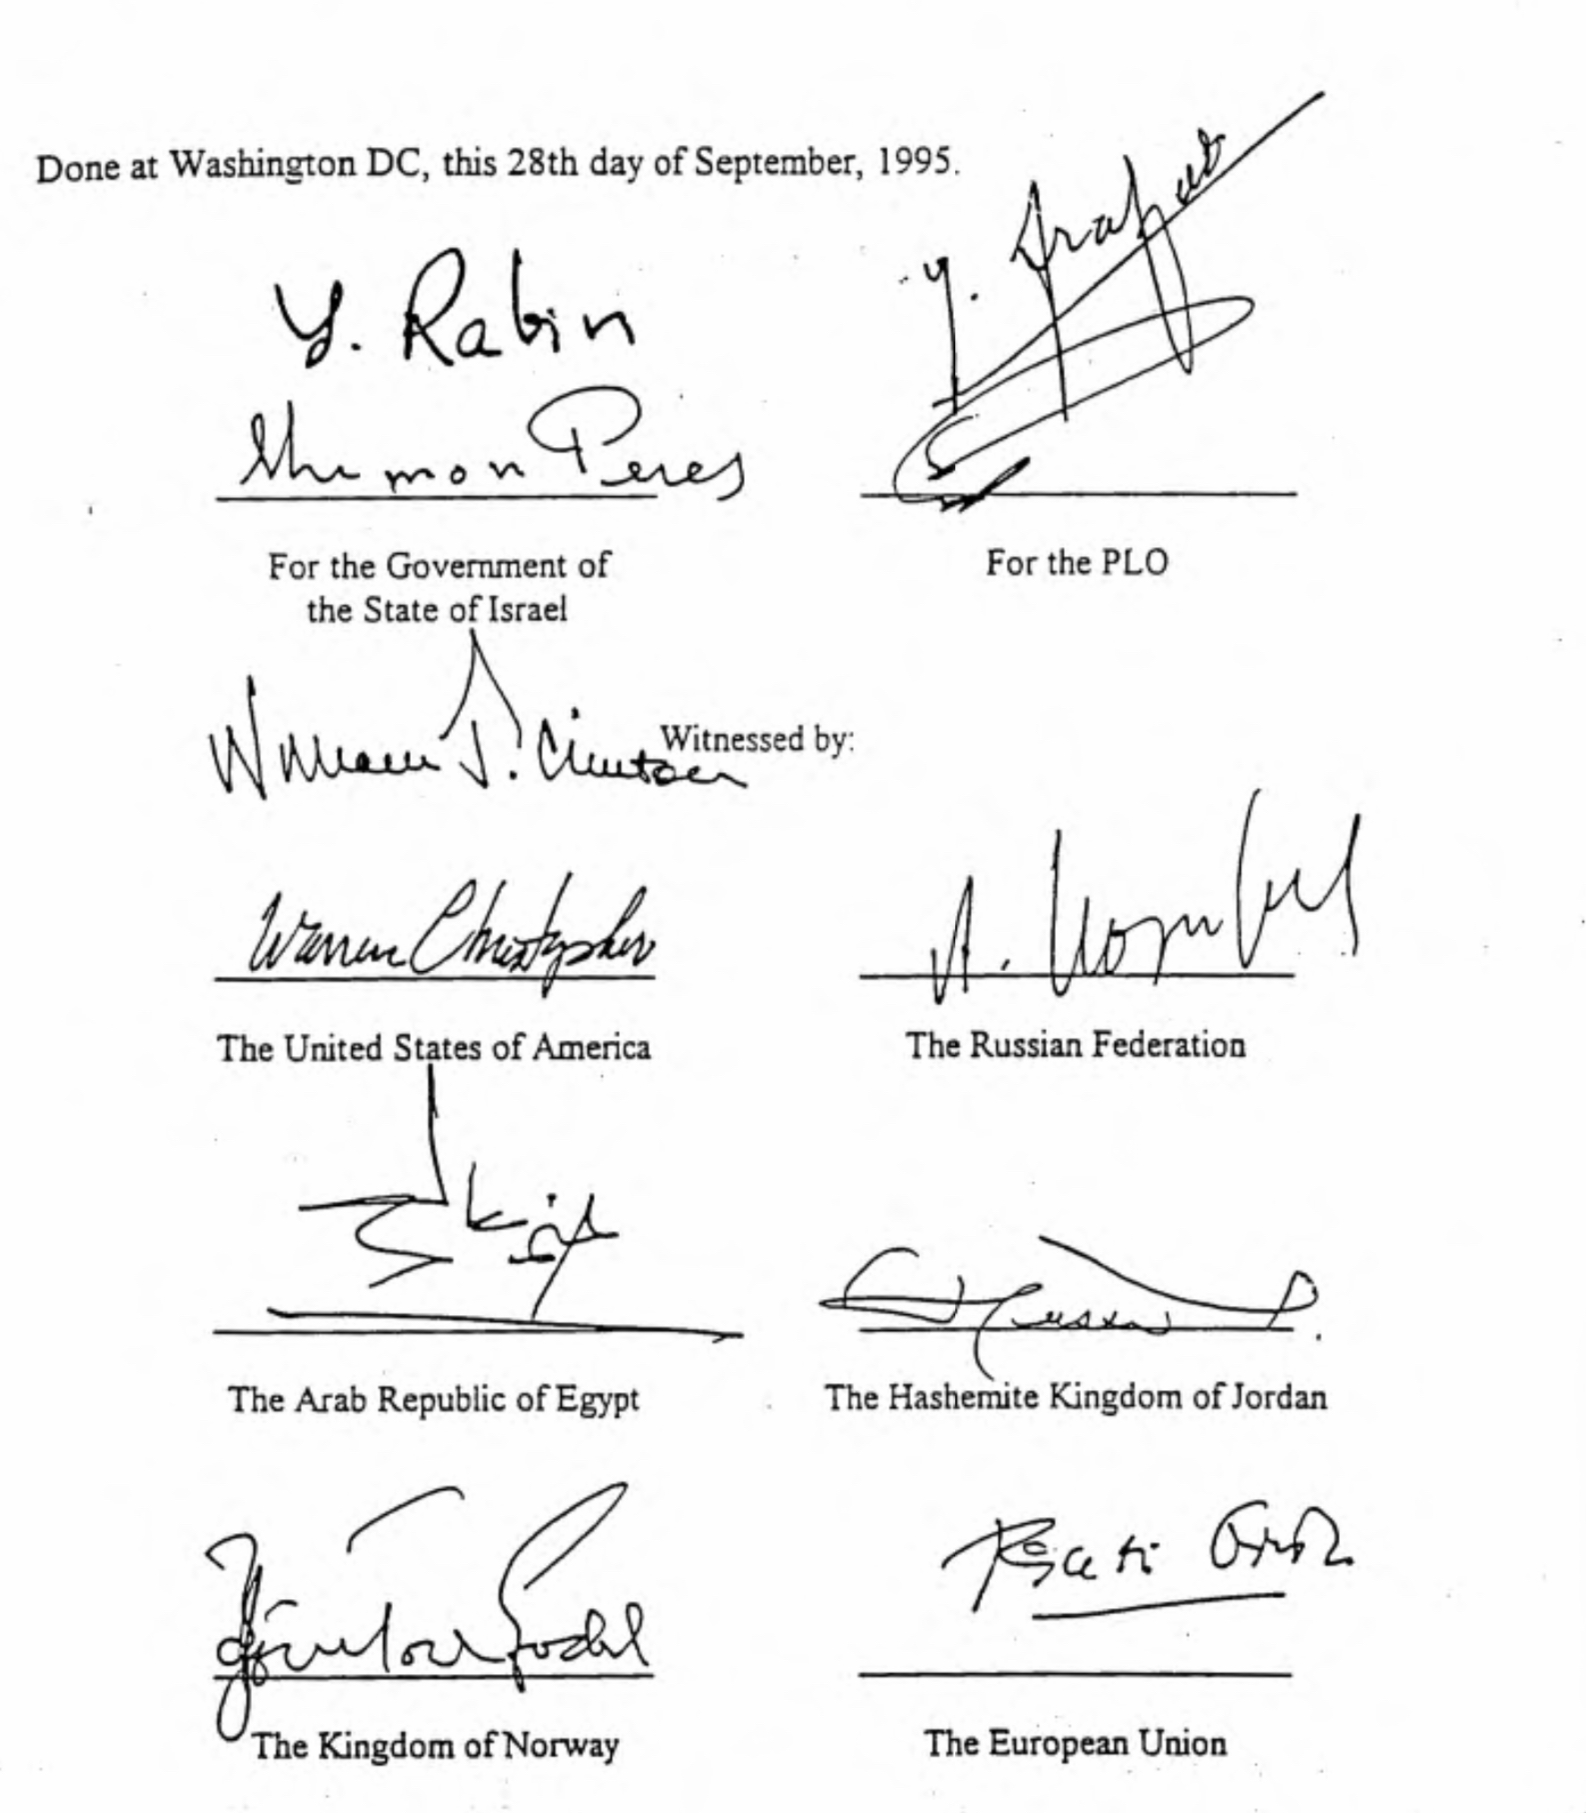 Done at Washington DC, this 28th day of September, 1995.
Y. Rabin
Y. Arafat
Shimon Peres
For the Government of
the State of Israel
For the PLO
William J. Clinton
Witnessed by:
Warren Christopher
The United States of America
The Russian Federation
The Arab Republic of Egypt
The Hashemite Kingdom of Jordan
The Kingdom of Norway
The European Union